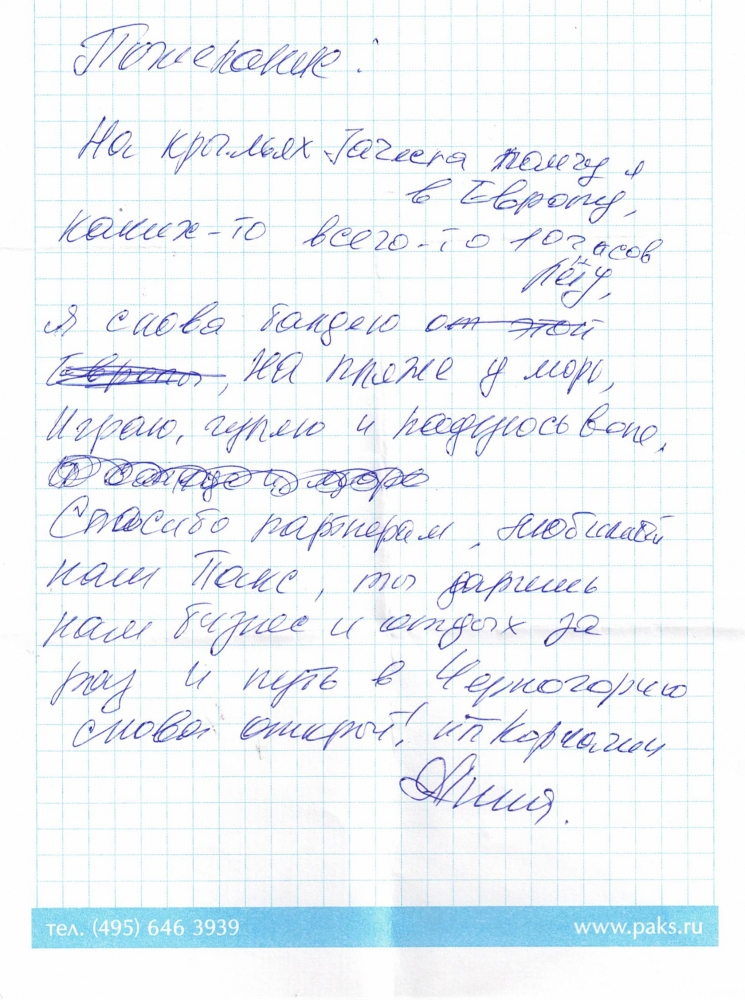 Пожелание:
На крыльях Гачела помчу я
в Европу,
каких-то всего-то 10 часов
лечу,
Я снова балдею от этой
Европы, на пляже у моря,
Играю, гуляю и радуюсь вапе,
Спасибо партнерам, любимый
наш Пакс, ты даришь
нам бизнес и отдых за
раз и путь в Черногорию
снова открыт! ИП Корнами
Анна.
тел. (495) 646 3939
www.paks.ru